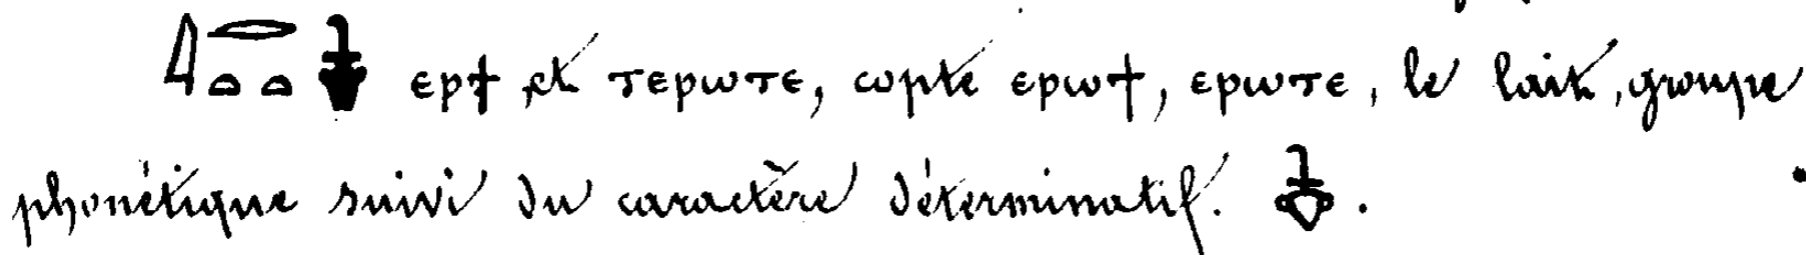 𓇋𓂋𓏏𓏏 ⲉⲣϯ et ⲧⲉⲣⲱⲧⲉ, copte ⲉⲣⲱϯ, ⲉⲣⲱⲧⲉ, le lait, groupe
phonétique suivi du caractère déterminatif. .